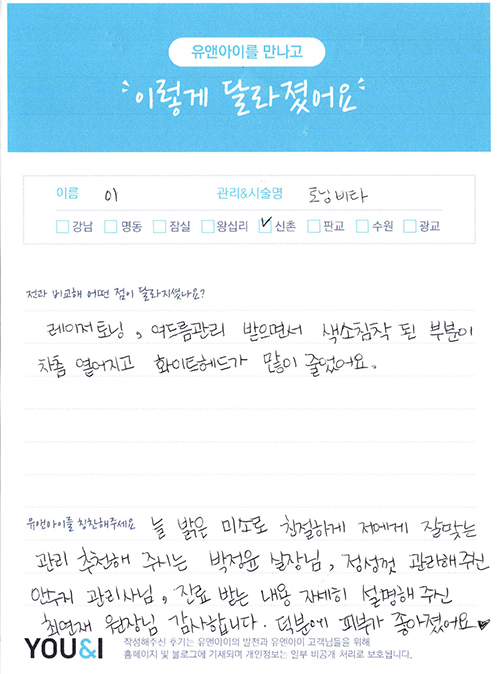 유앤아이를 만나고
이렇게 달라졌어요
이름 이 관리&시술명 토닝비타
강남 명동 잠실 왕십리 신촌 판교 수원 광교
전과 비교해 어떤 점이 달라지셨나요?
레이저토닝, 여드름관리 받으면서 색소침착 된 부분이
차츰 옅어지고 화이트헤드가 많이 줄었어요.
유앤아이를 칭찬해주세요 늘 밝은 미소로 친절하게 저에게 잘맞는
관리 추천해 주시는 박정윤 실장님, 정성껏 관리해주신
안수귀 관리사님, 진료 받는 내용 자세히 설명해 주신
최연재 원장님 감사합니다. 덕분에 피부가 좋아졌어요♥
YOU&I 작성해주신 후기는 유앤아이의 발전과 유앤아이 고객님들을 위해
홈페이지 및 블로그에 기재되며 개인정보는 일부 비공개 처리로 보호됩니다.